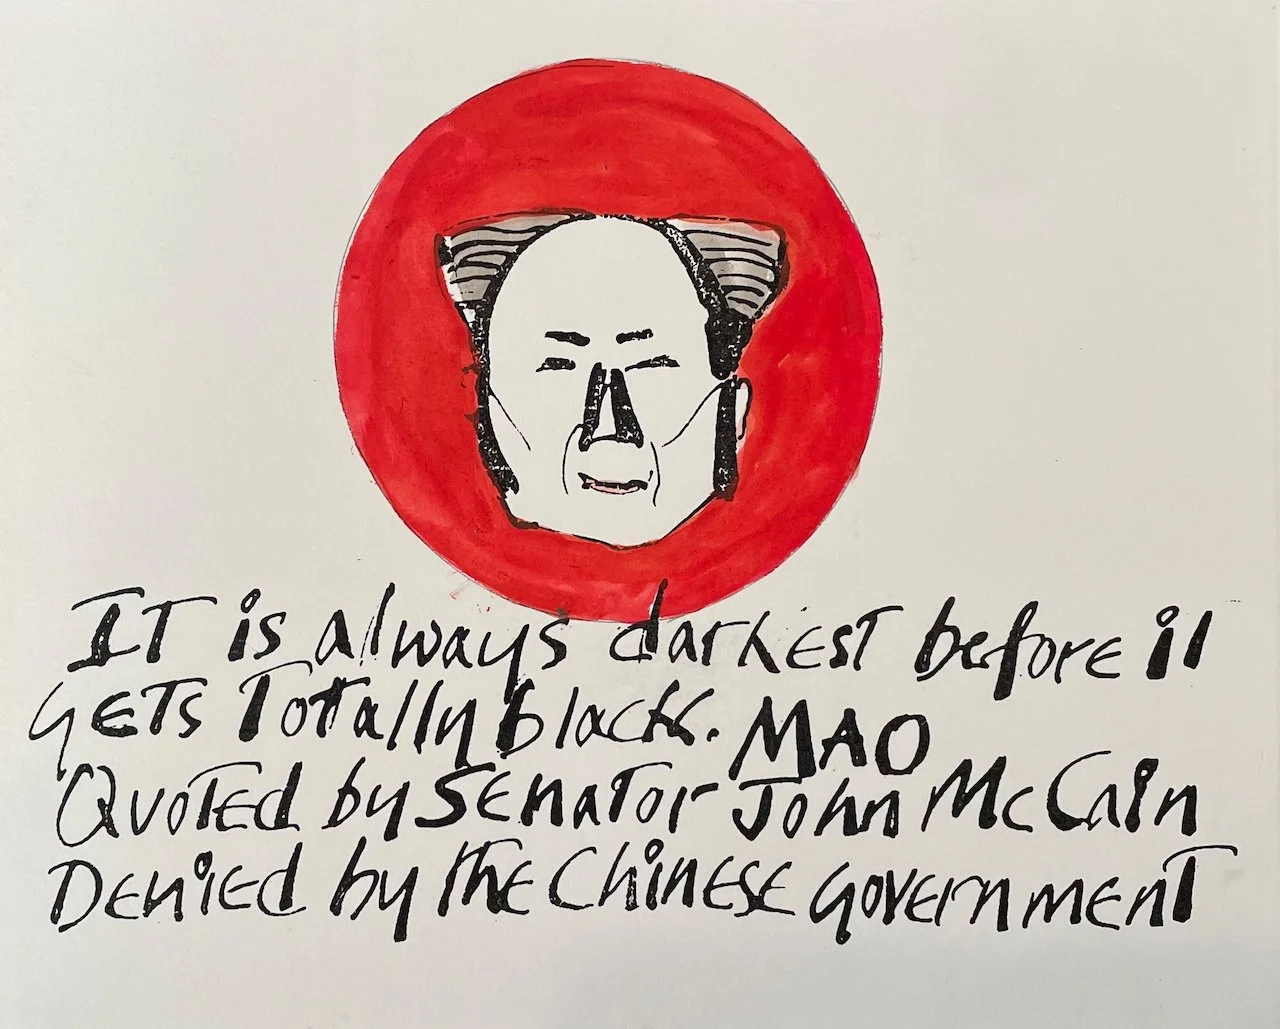 IT is always darkest before it
GETS Totally black. MAO
Quoted by Senator John McCain
Denied by the Chinese government